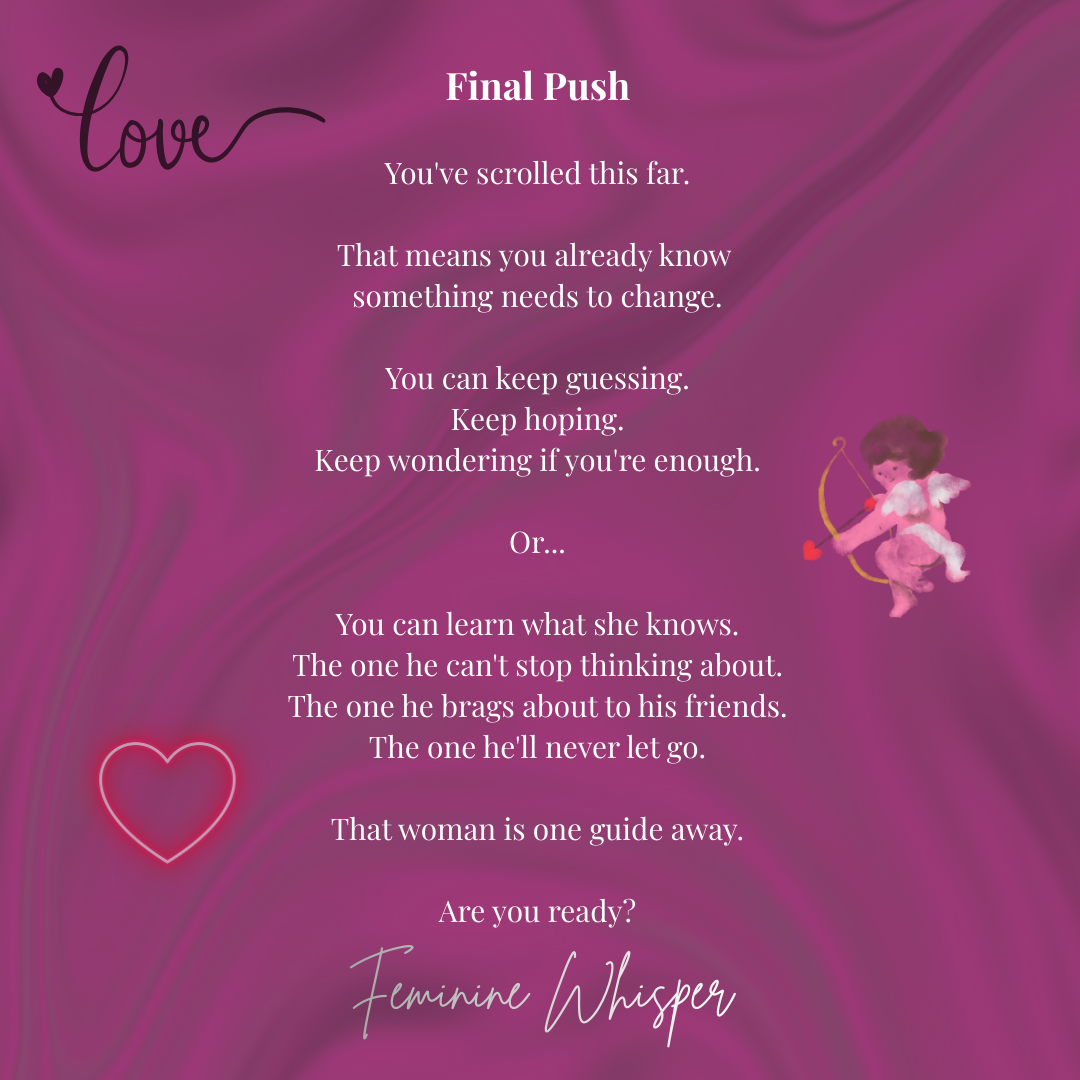 love
Final Push
You've scrolled this far.
That means you already know
something needs to change.
You can keep guessing.
Keep hoping.
Keep wondering if you're enough.
Or...
You can learn what she knows.
The one he can't stop thinking about.
The one he brags about to his friends.
The one he'll never let go.
That woman is one guide away.
Are you ready?
Feminine Whisper